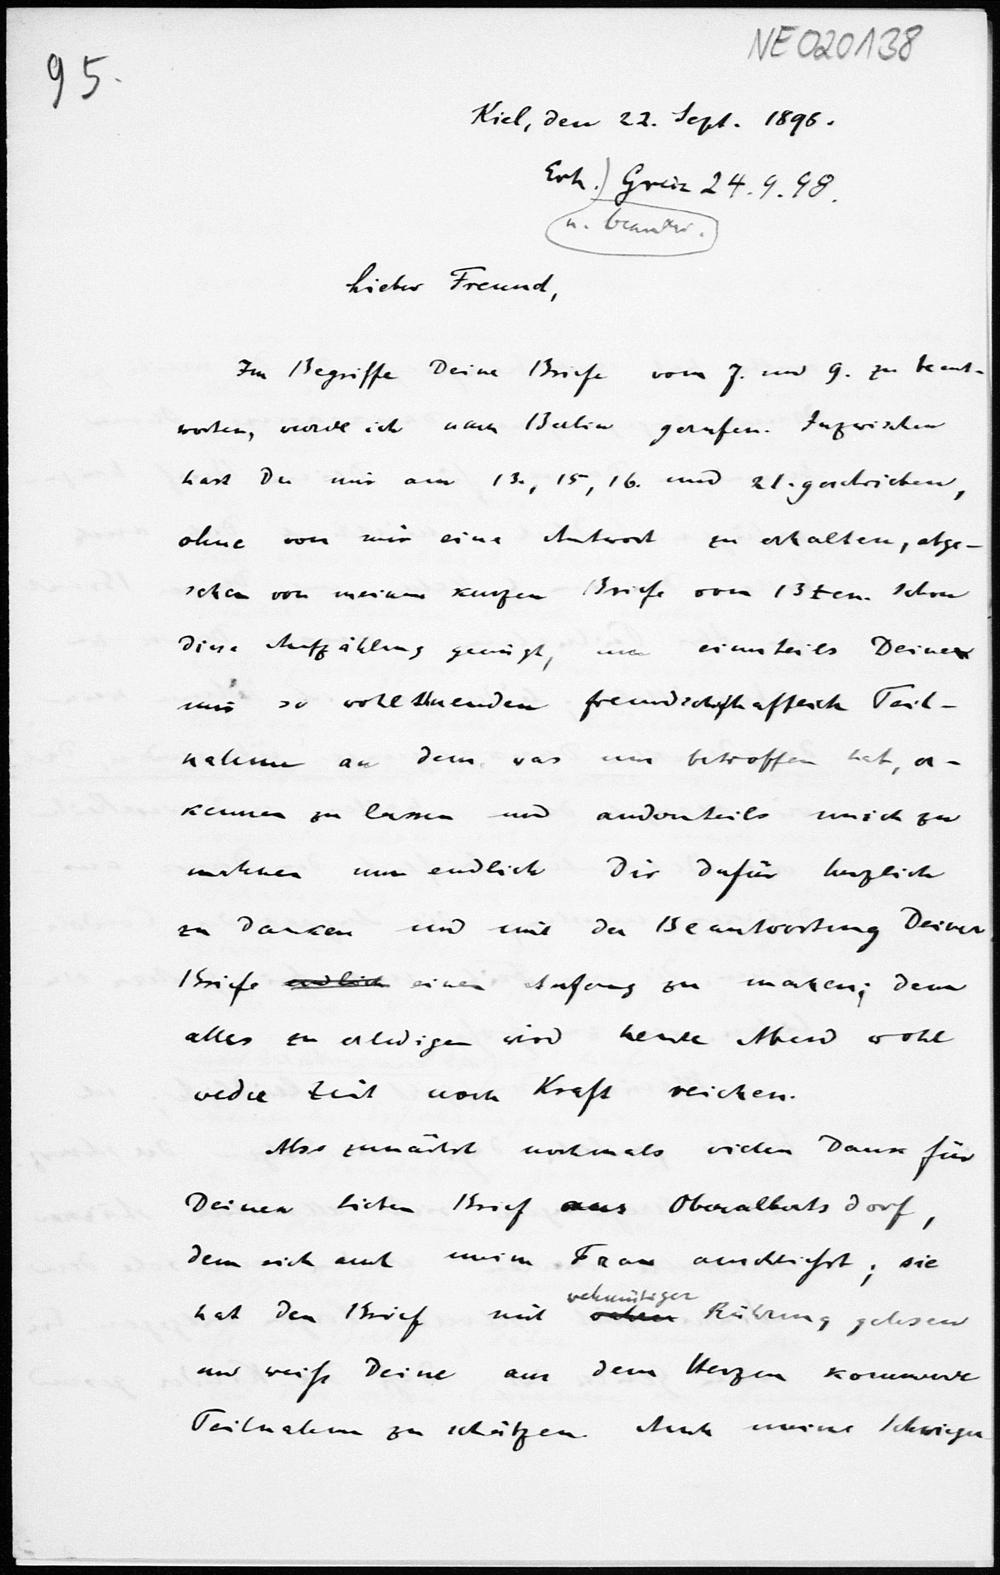 NE020138
95.
Kiel, den 22. Sept. 1898.
Erh.) Greiz 24.9.98.
u. beantw.
Lieber Freund,
Im Begriffe Deine Briefe vom 7. und 9. zu beant-
worten, wurde ich nach Berlin gerufen. Inzwischen
hast Du mir am 13., 15, 16. und 21. geschrieben,
ohne von mir eine Antwort zu erhalten, abge-
sehen von meinem kurzen Briefe vom 13ten. Schon
diese Aufzählung genügt, um einesteils Deine
mir so wohlthuenden freundschaftlich Teil-
nahme an dem, was uns betroffen hat, er-
kennen zu lassen und andernteils mich zu
mahnen nun endlich Dir dafür herzlich
zu danken und mit der Beantwortung Deiner
Briefe endlich einen Anfang zu machen; denn
alles zu erledigen wird heute Abend wohl
weder Zeit noch Kraft reichen.
Also zunächst nochmals vielen Dank für
Deinen lieben Brief aus Oberalbertsdorf,
dem sich auch meine Frau anschliesst; sie
hat den Brief mit wehmütiger Rührung gelesen
und weiss Deine aus dem Herzen kommende
Teilnahme zu schätzen. Auch meine Schwieger